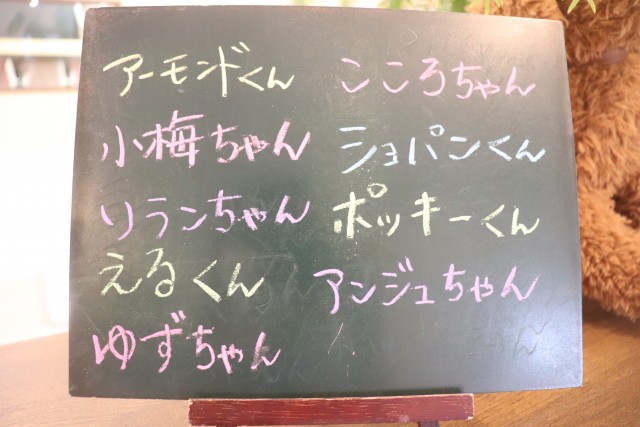 アーモンドくん
小梅ちゃん
リランちゃん
えるくん
ゆずちゃん
こころちゃん
ショパンくん
ポッキーくん
アンジュちゃん